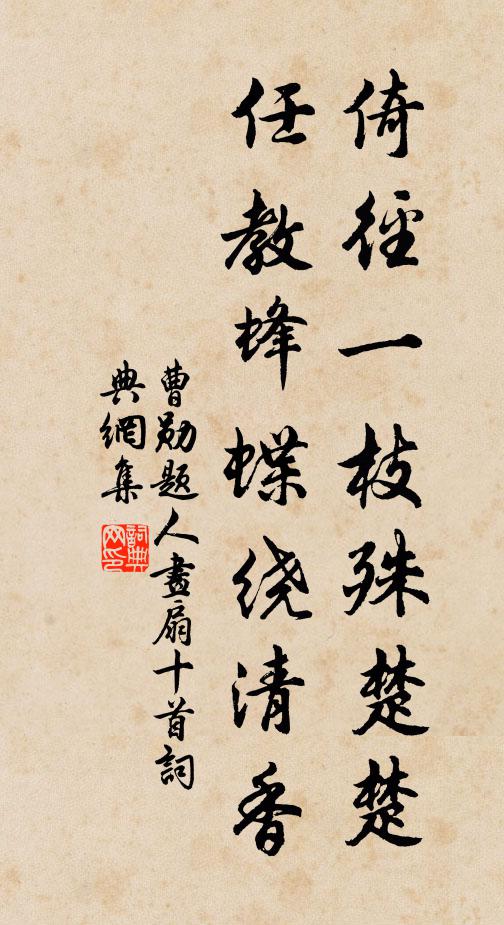 倚徑一枝殊楚楚
任教蜂蝶绕清香
曹勛題人畫扇十首詞
典網集
詞典
网印